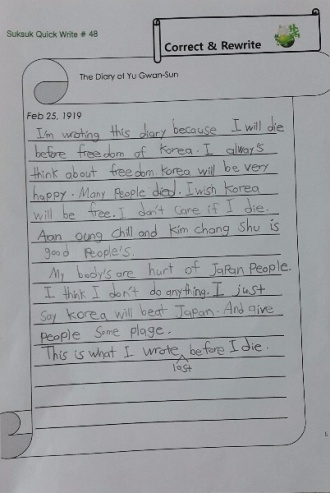 Suksuk Quick Write # 48
Correct & Rewrite
The Diary of Yu Gwan-Sun
Feb 25, 1919
I'm wroting this diary because I will die
before freedom of Korea. I always
think about freedom. Korea will be very
happy. Many People died. I wish Korea
will be free. I don't care if I die.
Aan oung chill and kim chang shu is
good People's.
My body's are hurt of JaPan People.
I think I don't do anything. I just
Say korea will beat Japan. And give
PeoPle some plage.
This is what I wrote before I die.
last